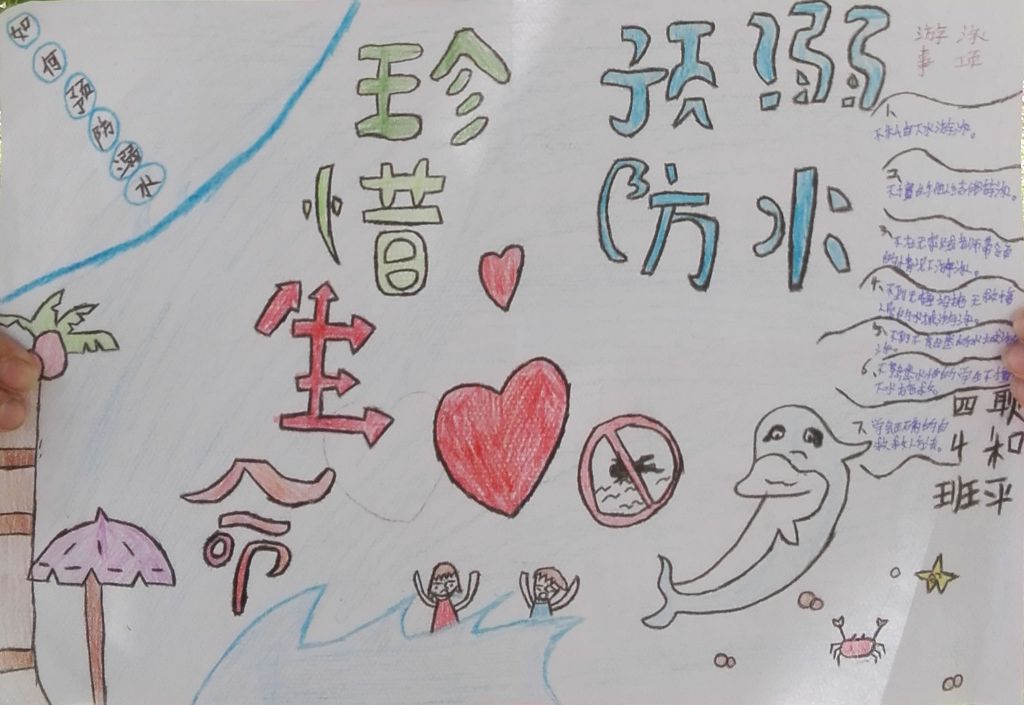 如何预防溺水
珍惜生命
预防溺水
游泳
事项
1、
不私自下水游泳。
2、
不擅自与他人结伴游泳。
3、
不在无家长或老师带领
的情况下游泳。
4、不到无设施无救援
人员的水域游泳。
5、不到不熟悉的水域游
泳。
6、不熟悉水性的学生不擅
下水
7、学会正确的自
救救人方法。
四4班
耿和平